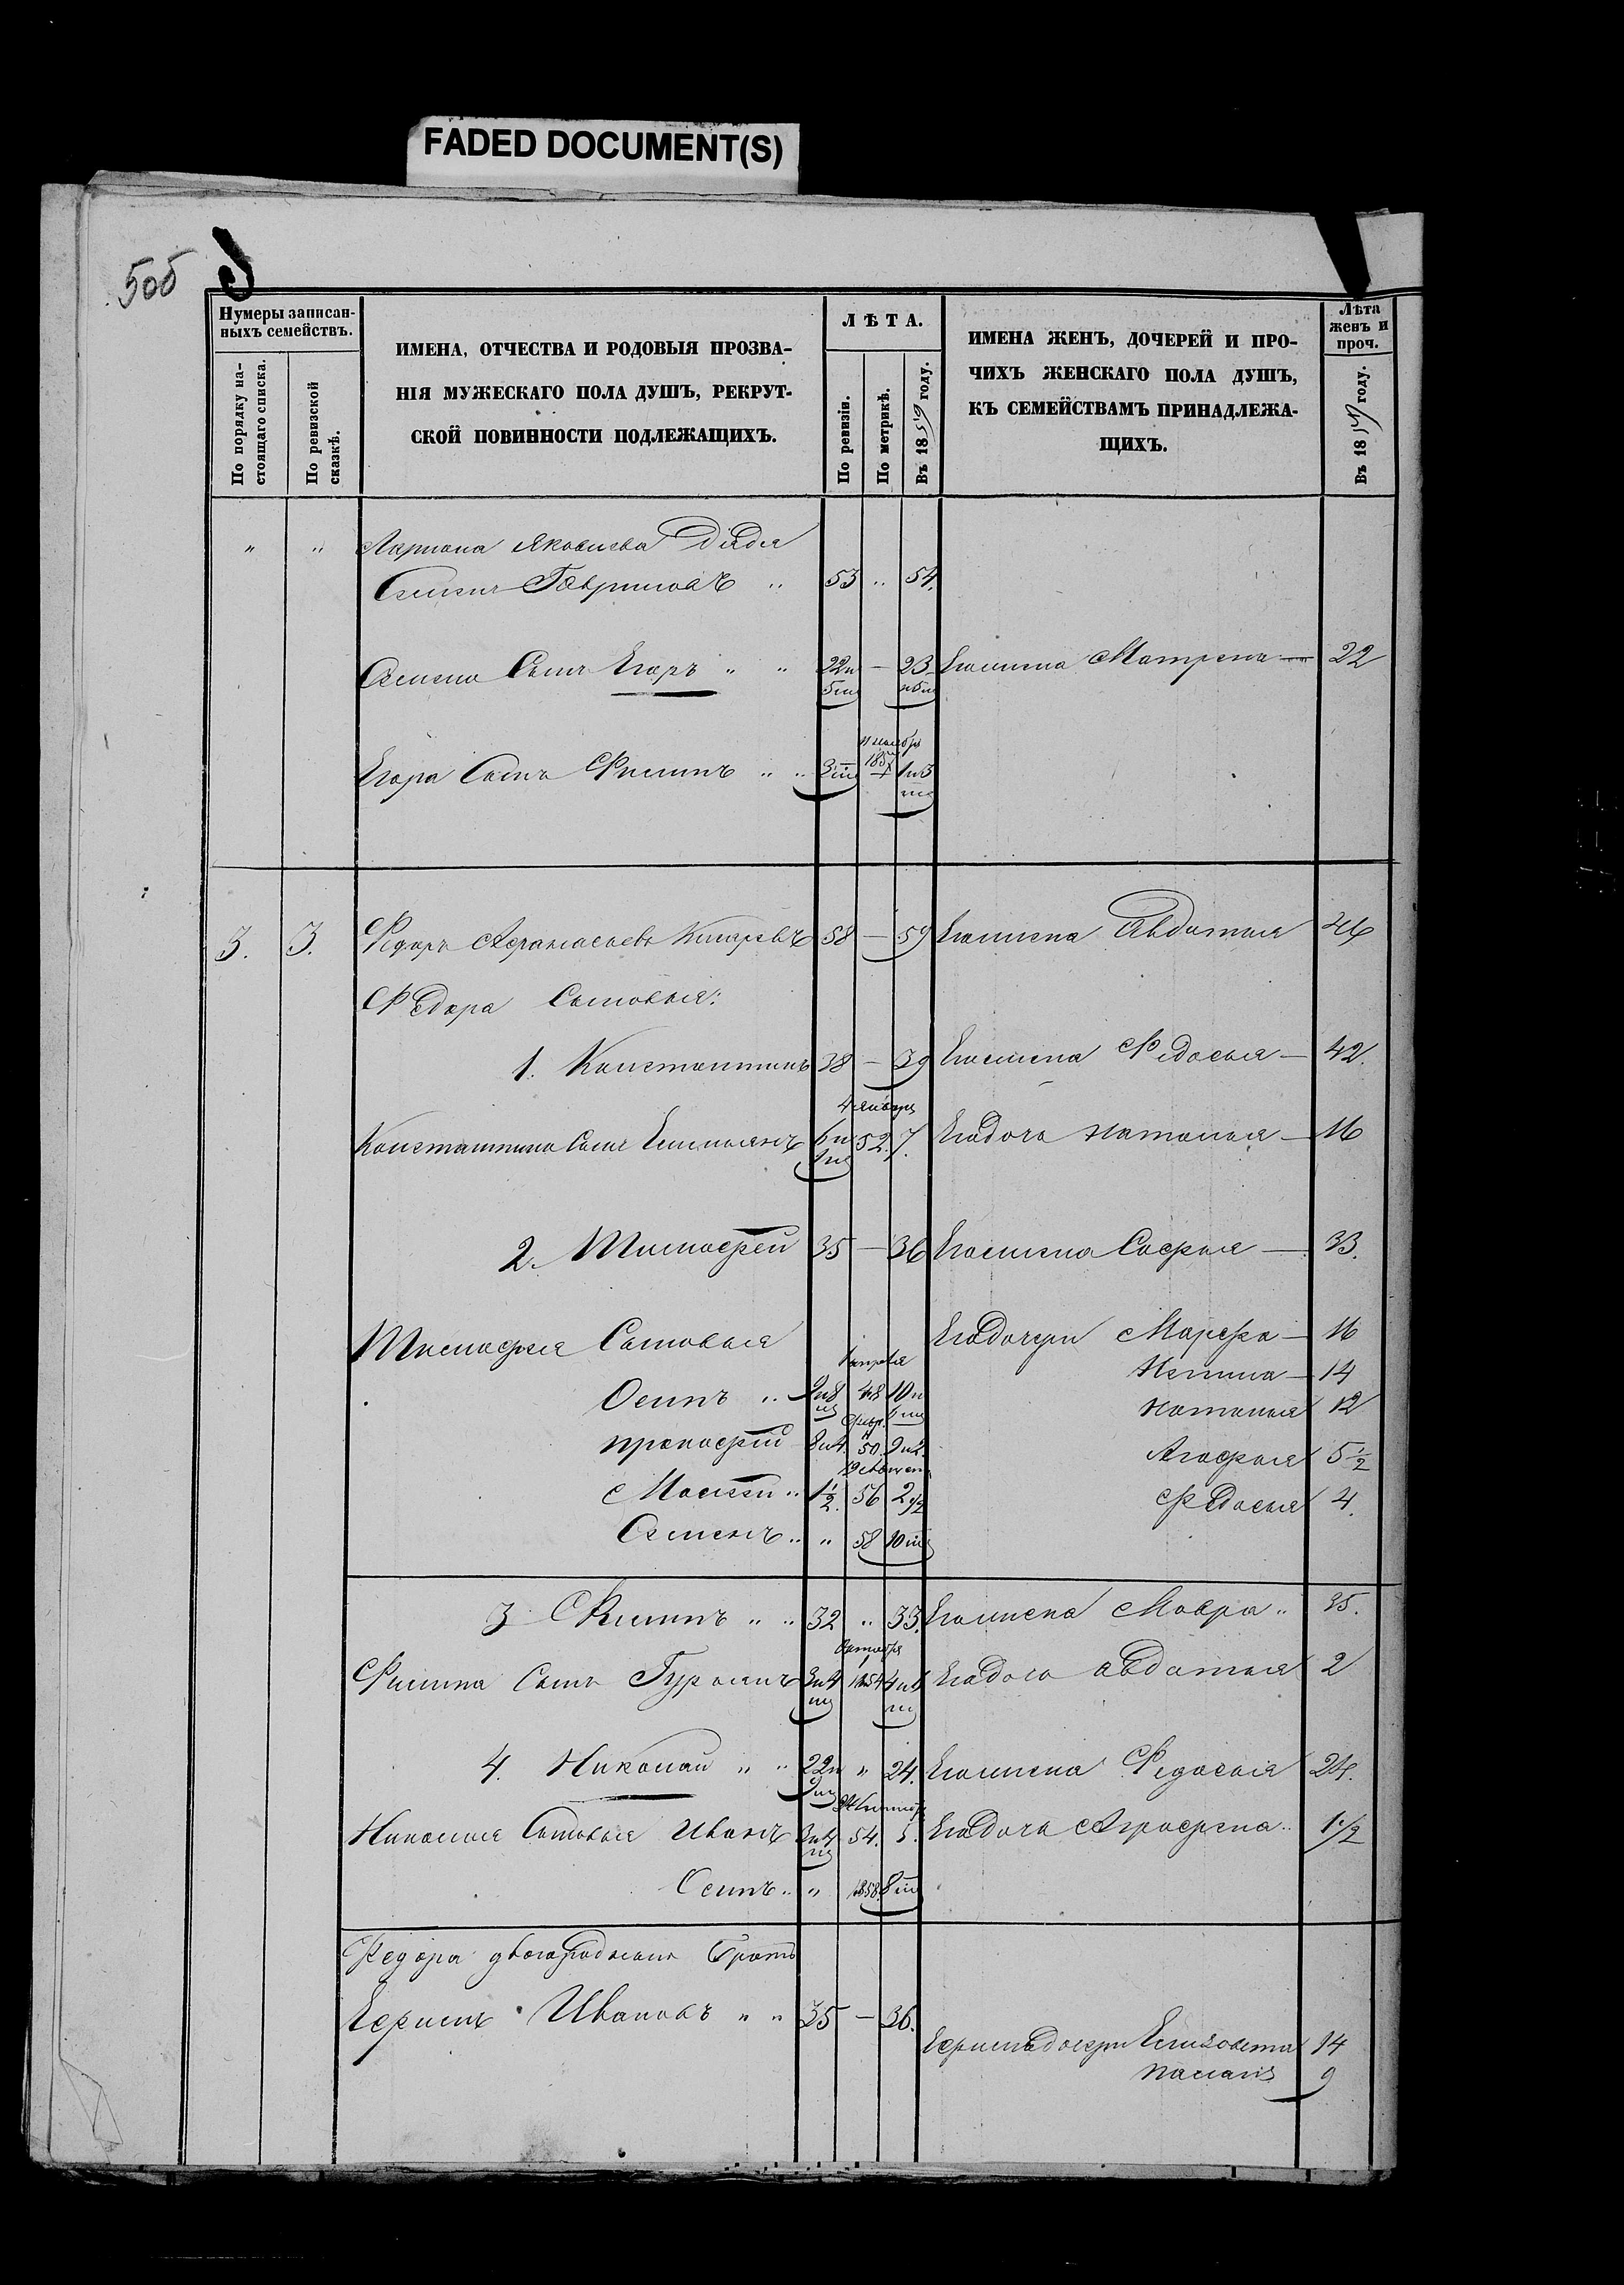 FADED DOCUMENT(S)
505
Нумеры записан-
ныхъ семействъ.
По порядку на-
стоящаго списка.
По ревизской
сказкѣ.
ИМЕНА, ОТЧЕСТВА И РОДОВЫЯ ПРОЗВА-
НІЯ МУЖЕСКАГО ПОЛА ДУШЪ, РЕКРУТ-
СКОЙ ПОВИННОСТИ ПОДЛЕЖАЩИХЪ.
ЛѢТА.
По ревизіи.
По метрикѣ.
Въ 1859 году.
ИМЕНА ЖЕНЪ, ДОЧЕРЕЙ И ПРО-
ЧИХЪ ЖЕНСКАГО ПОЛА ДУШЪ,
КЪ СЕМЕЙСТВАМЪ ПРИНАДЛЕЖА-
ЩИХЪ.
Лѣта
женъ и
проч.
Въ 1859 году.
" " Лариона Яковлева Дядя
Семенъ Гавриловъ " 53 " 54.
Семена Сынъ Егоръ " " 22 и — 23 Егожена Матрена — 22
Егора Сынъ Филипъ " "
3. 3. Федоръ Афанасьевъ 58 — 59 Егожена Авдотья
Федора Сыновья:
1. Константинъ 38 — 39 Егожена Федосья — 42.
Константина Сынъ Емельянъ 52. 7. Егодочь Наталья — 16
2. Тимофей 35 — 36 Егожена Софья — 33.
Тимофея Сыновья Егодочери Марфа — 16
Осипъ " 48 14
Прокофій 50. Наталья 12
Агафья 5 1/2
Моисей " 1 1/2. 56 2 1/2 Федосья 4.
Семенъ " " 58 10 м
3 Филипъ " " 32 " 33. Егожена Мавра " 35.
Октября
Филипа Сынъ 1854 Егодочь Авдотья 2
4. Николай " " 22 и " 24. Егожена Федосья 24.
Николая Сыновья Иванъ 54. 5. Егодочь Аграфена " 1 1/2
Осипъ " " 1858. 8 м
Федора двоюродный Братъ
Ефимъ Ивановъ " " 35 — 36.
Ефима дочери Елизавета 14
9